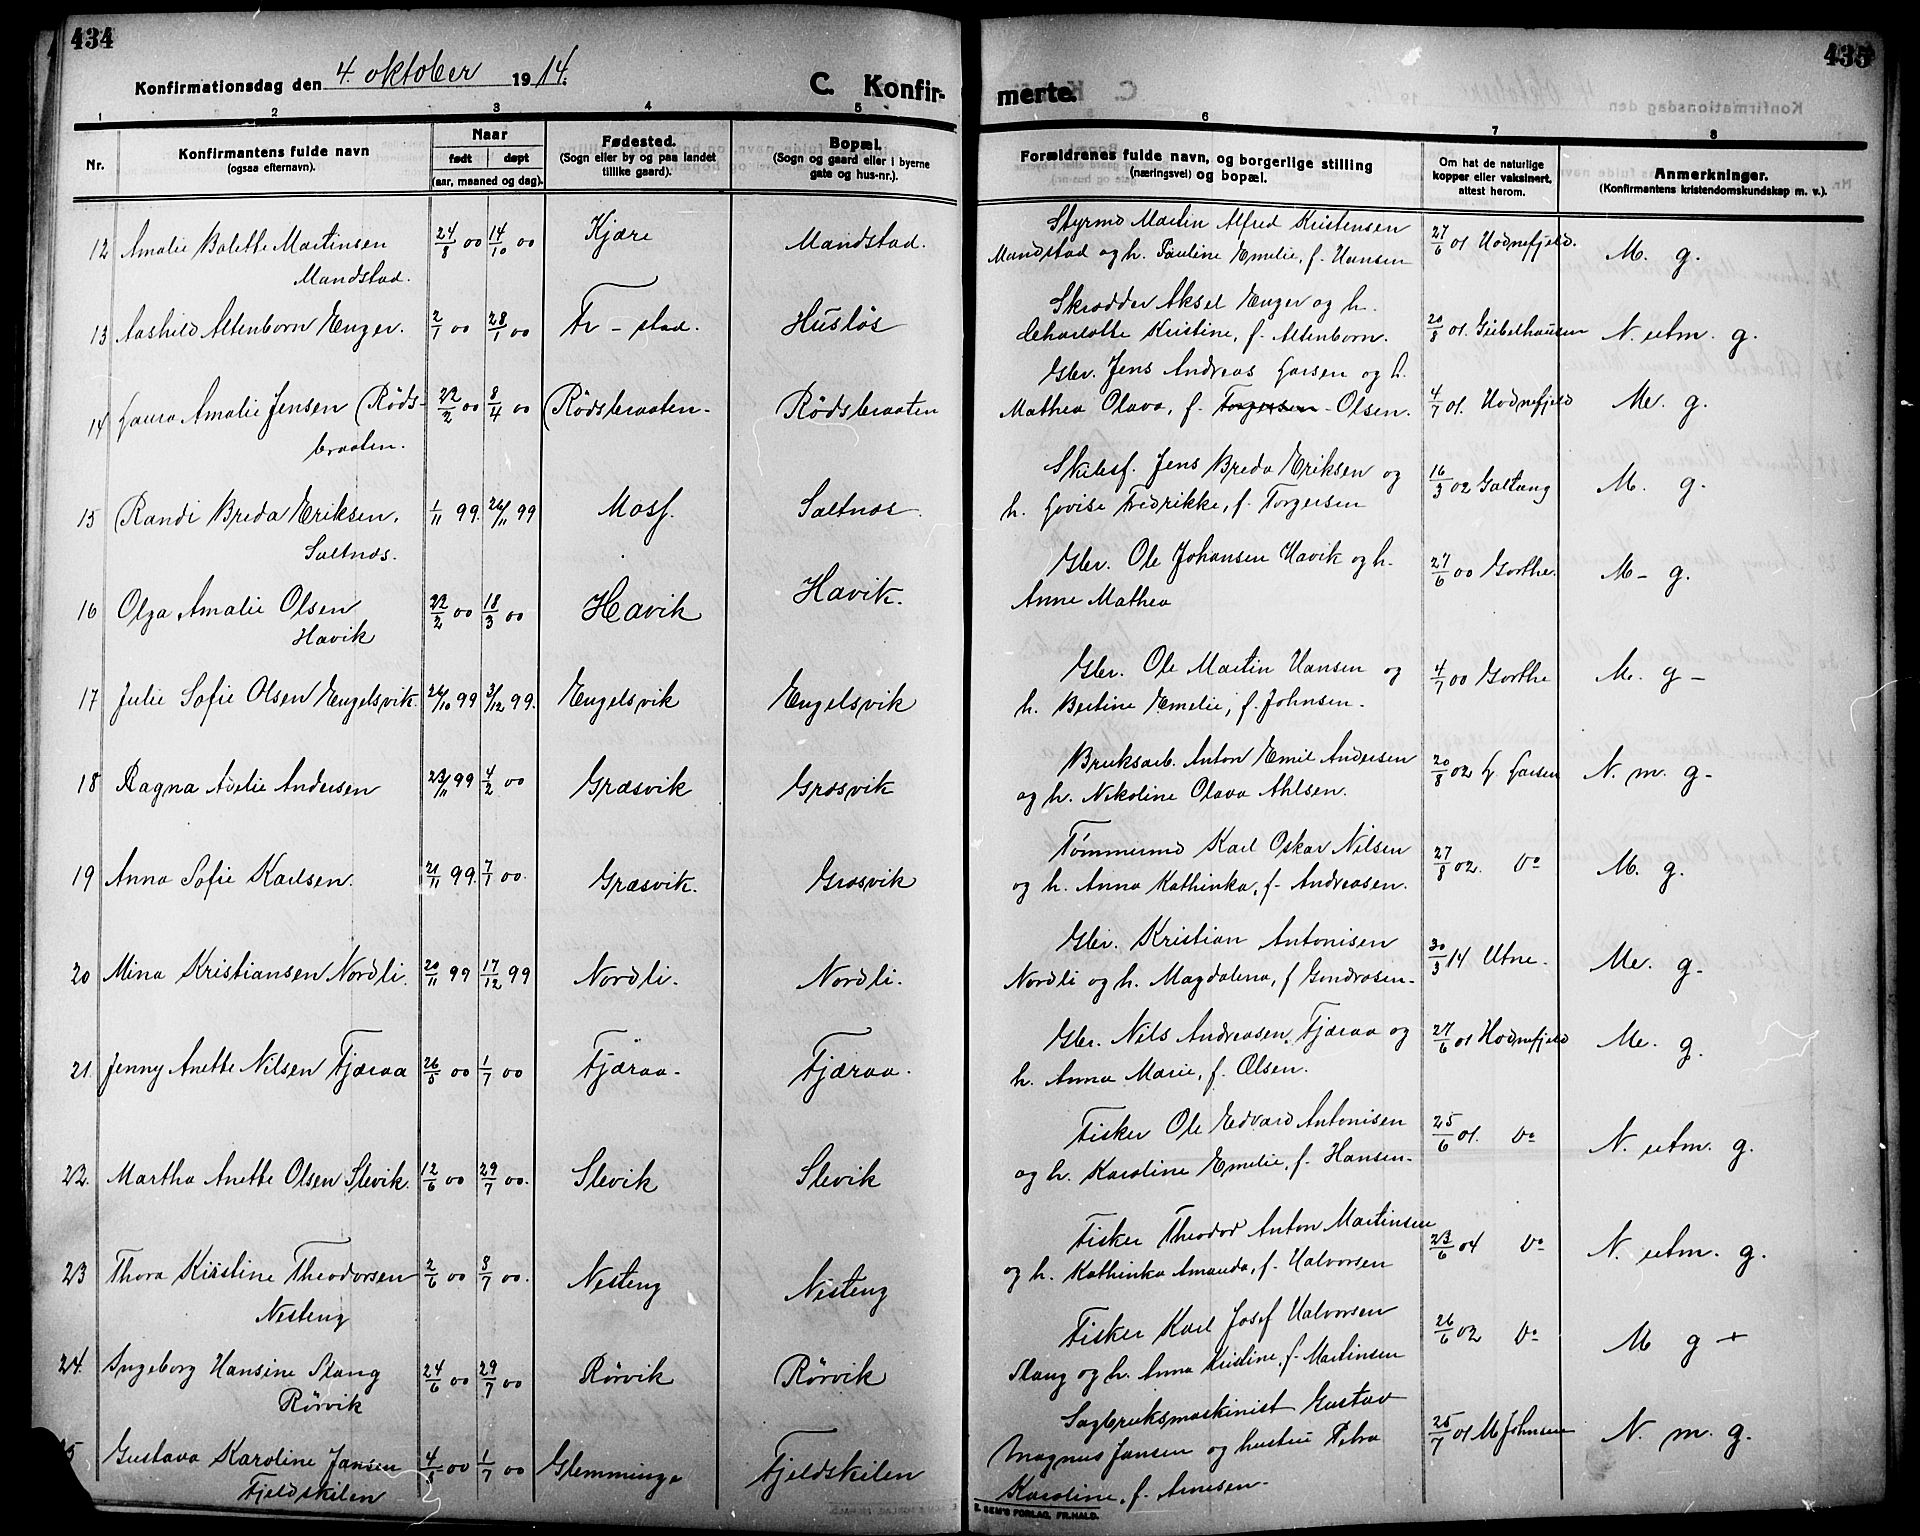 434
Konfirmationsdag den 4. oktober 1914.
C. Konfir-
1 2 3 4 5
Nr.
Konfirmantens fulde navn
(ogsaa efternavn).
Naar
født døpt
(aar, maaned og dag).
Fødested.
(Sogn eller by og paa landet
tillike gaard).
Bopæl.
(Sogn og gaard eller i byerne
gate og hus-nr.).
12 Amalie Balette Martinsen 24/8 00 14/10 00 Kjære Mandstad.
Mandstad.
13 Aashild Altenborn Enger. 2/1 00 28/1 00 Fr-stad. Husløs
14 Laura Amalie Jensen Røds- 22/2 00 8/4 00 Rødsbraaten- Rødsbraaten
braaten.
15 Randi Breda Eriksen, 1/11 99. 26/11 99 Moss. Saltnes.
Saltnæs.
16 Olga Amalie Olsen 22/2 00 18/3 00 Havik Havik.
Havik
17 Julie Sofie Olsen Engelsvik. 26/10 99 3/12 99. Engelsvik Engelsvik
18 Ragna Andersen 23/11 99 4/2 00 Græsvik Græsvik
19 Anna Sofie Karlsen. 21/11 99. 7/1 00. Græsvik. Græsvik
20 Mina Kristiansen Nordli. 20/11 99 17/12 99 Nordli. Nordli.
21. Jenny Anette Nilsen Fjæraa 26/5 00 1/7 00 Fjæraa- Fjæraa.
22. Martha Anette Olsen Slevik. 12/6 00 29/7 00. Slevik Slevik
23 Thora Kristine Theodorsen 2/6 00 8/7 00. Nesteng Nesteng
Nesteng
24. Ingeborg Hansine Slang 24/6 00 29/7 00 Rørvik Rørvik
Rørvik
5 Gustava Karoline Jansen 4/5 00 1/7 00 Glemminge Fjeldskilen
Fjeldskilen
435
merte.
6 7 8
Forældrenes fulde navn, og borgerlige stilling
(næringsvei) og bopæl.
Om hat de naturlige
kopper eller vaksinert,
attest herom.
Anmerkninger.
(Konfirmantens kristendomskundskap m. v.).
Styrmd Martin Alfred Kristensen
Mandstad og h. Pauline Emelie, f. Hansen 27/6 01 Hodnefjeld. M. g.
Skrædder Aksel Enger og h.
Charlotte Kristine, f. Altenborn. 20/8 01. Giebelhausen N. utm. g.
Gbr. Jens Andreas Larsen og h.
Mathea Olava, f. Torgersen - Olsen. 4/7 01. Hodnefjeld Me. g.
Skibsf. Jens Breda Eriksen og
h. Lovise Fredrikke, f. Torgersen 16/3 02 Galtung M. g.
Gbr. Ole Johansen Havik og h.
Anne Mathea 27/6 00 Gorthe. M- g.
Gbr. Ole Martin Hansen og
h. Bertine Emelie, f. Johnsen. 4/7 00 Gorthe M. g-
Bruksarb. Anton Emil Andersen
og h. Nikoline Olava Ahlsen. 20/8 02 L. Larsen N. m. g-
Tømmermd Karl Oskar Nilsen
og h. Anna Kathinka, f. Andreasen. 27/8 02. Do M. g.
Gbr. Kristian Antonisen
Nordli og h. Magdalena, f 30/3 14 Utne. Me. g.
Gbr. Nils Andreasen Fjæraa og
h. Anna Marie, f. Olsen. 27/6 01 Hodnefjeld Me. g.
Fisker Ole Edvard Antonisen
og h. Karoline Emelie, f. Hansen. 25/6 01. Do N. utm. g.
Fisker Theodor Anton Martinsen
og h. Kathinka Amanda, f. Halvorsen 23/6 04 Do N. utm. g.
Fisker Karl Josef Halvorsen
Slang og h. Anna Kristine, f. Martinsen 26/6 02 Do M g +
Sagbruksmaskinist Gustav
Magnus Jansen og hustru Petra 25/7 01 M Johnsen N. m. g.
Karoline, f. Arnesen.
E. SEM'S FORLAG, FR.HALD.